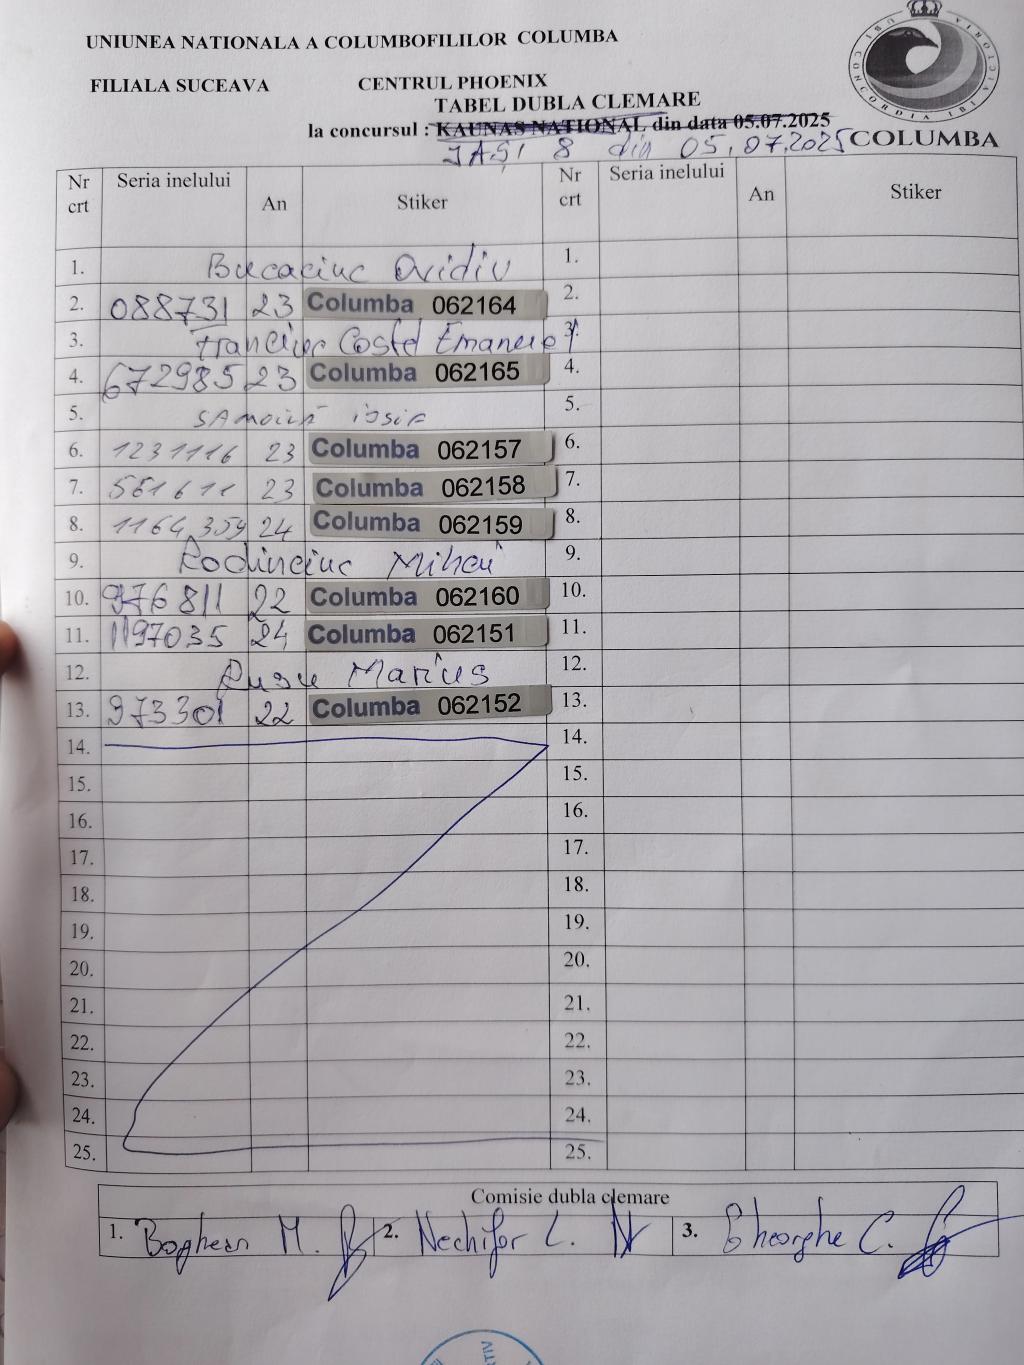 UNIUNEA NATIONALA A COLUMBOFILILOR COLUMBA
FILIALA SUCEAVA CENTRUL PHOENIX
TABEL DUBLA CLEMARE
la concursul : KAUNAS NATIONAL din data 05.07.2025
IAȘI 8 din 05.07.2025
UBI CONCORDIA IBI VICTORIA
COLUMBA
Nr crt Seria inelului An Stiker Nr crt Seria inelului An Stiker
1. Bucaciuc Ovidiu 1.
2. 088731 23 Columba 062164 2.
3. Franciuc Costel Emanuel 3.
4. 672985 23 Columba 062165 4.
5. SAMOILĂ iosif 5.
6. 1231116 23 Columba 062157 6.
7. 561611 23 Columba 062158 7.
8. 1164359 24 Columba 062159 8.
9. Rodinciuc Mihai 9.
10. 976811 22 Columba 062160 10.
11. 1197035 24 Columba 062151 11.
12. Rusu Marius 12.
13. 973301 22 Columba 062152 13.
14. 14.
15. 15.
16. 16.
17. 17.
18. 18.
19. 19.
20. 20.
21. 21.
22. 22.
23. 23.
24. 24.
25. 25.
Comisie dubla clemare
1. Boghean M. 2. Nechifor L. 3. Gheorghe C.